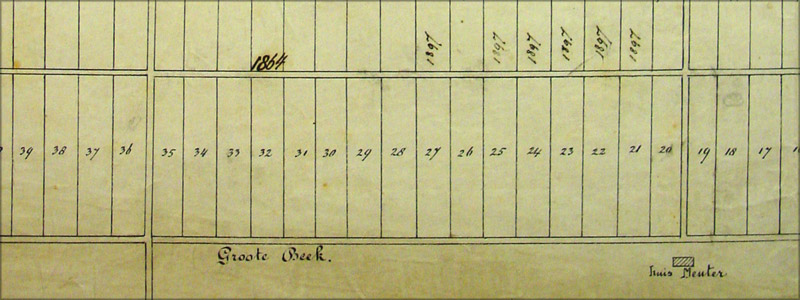 1897 1897 1897 1897 1897 1897
1864
39 38 37 36 35 34 33 32 31 30 29 28 27 26 25 24 23 22 21 20 19 18 17
Groote Beek.
huis Meuter